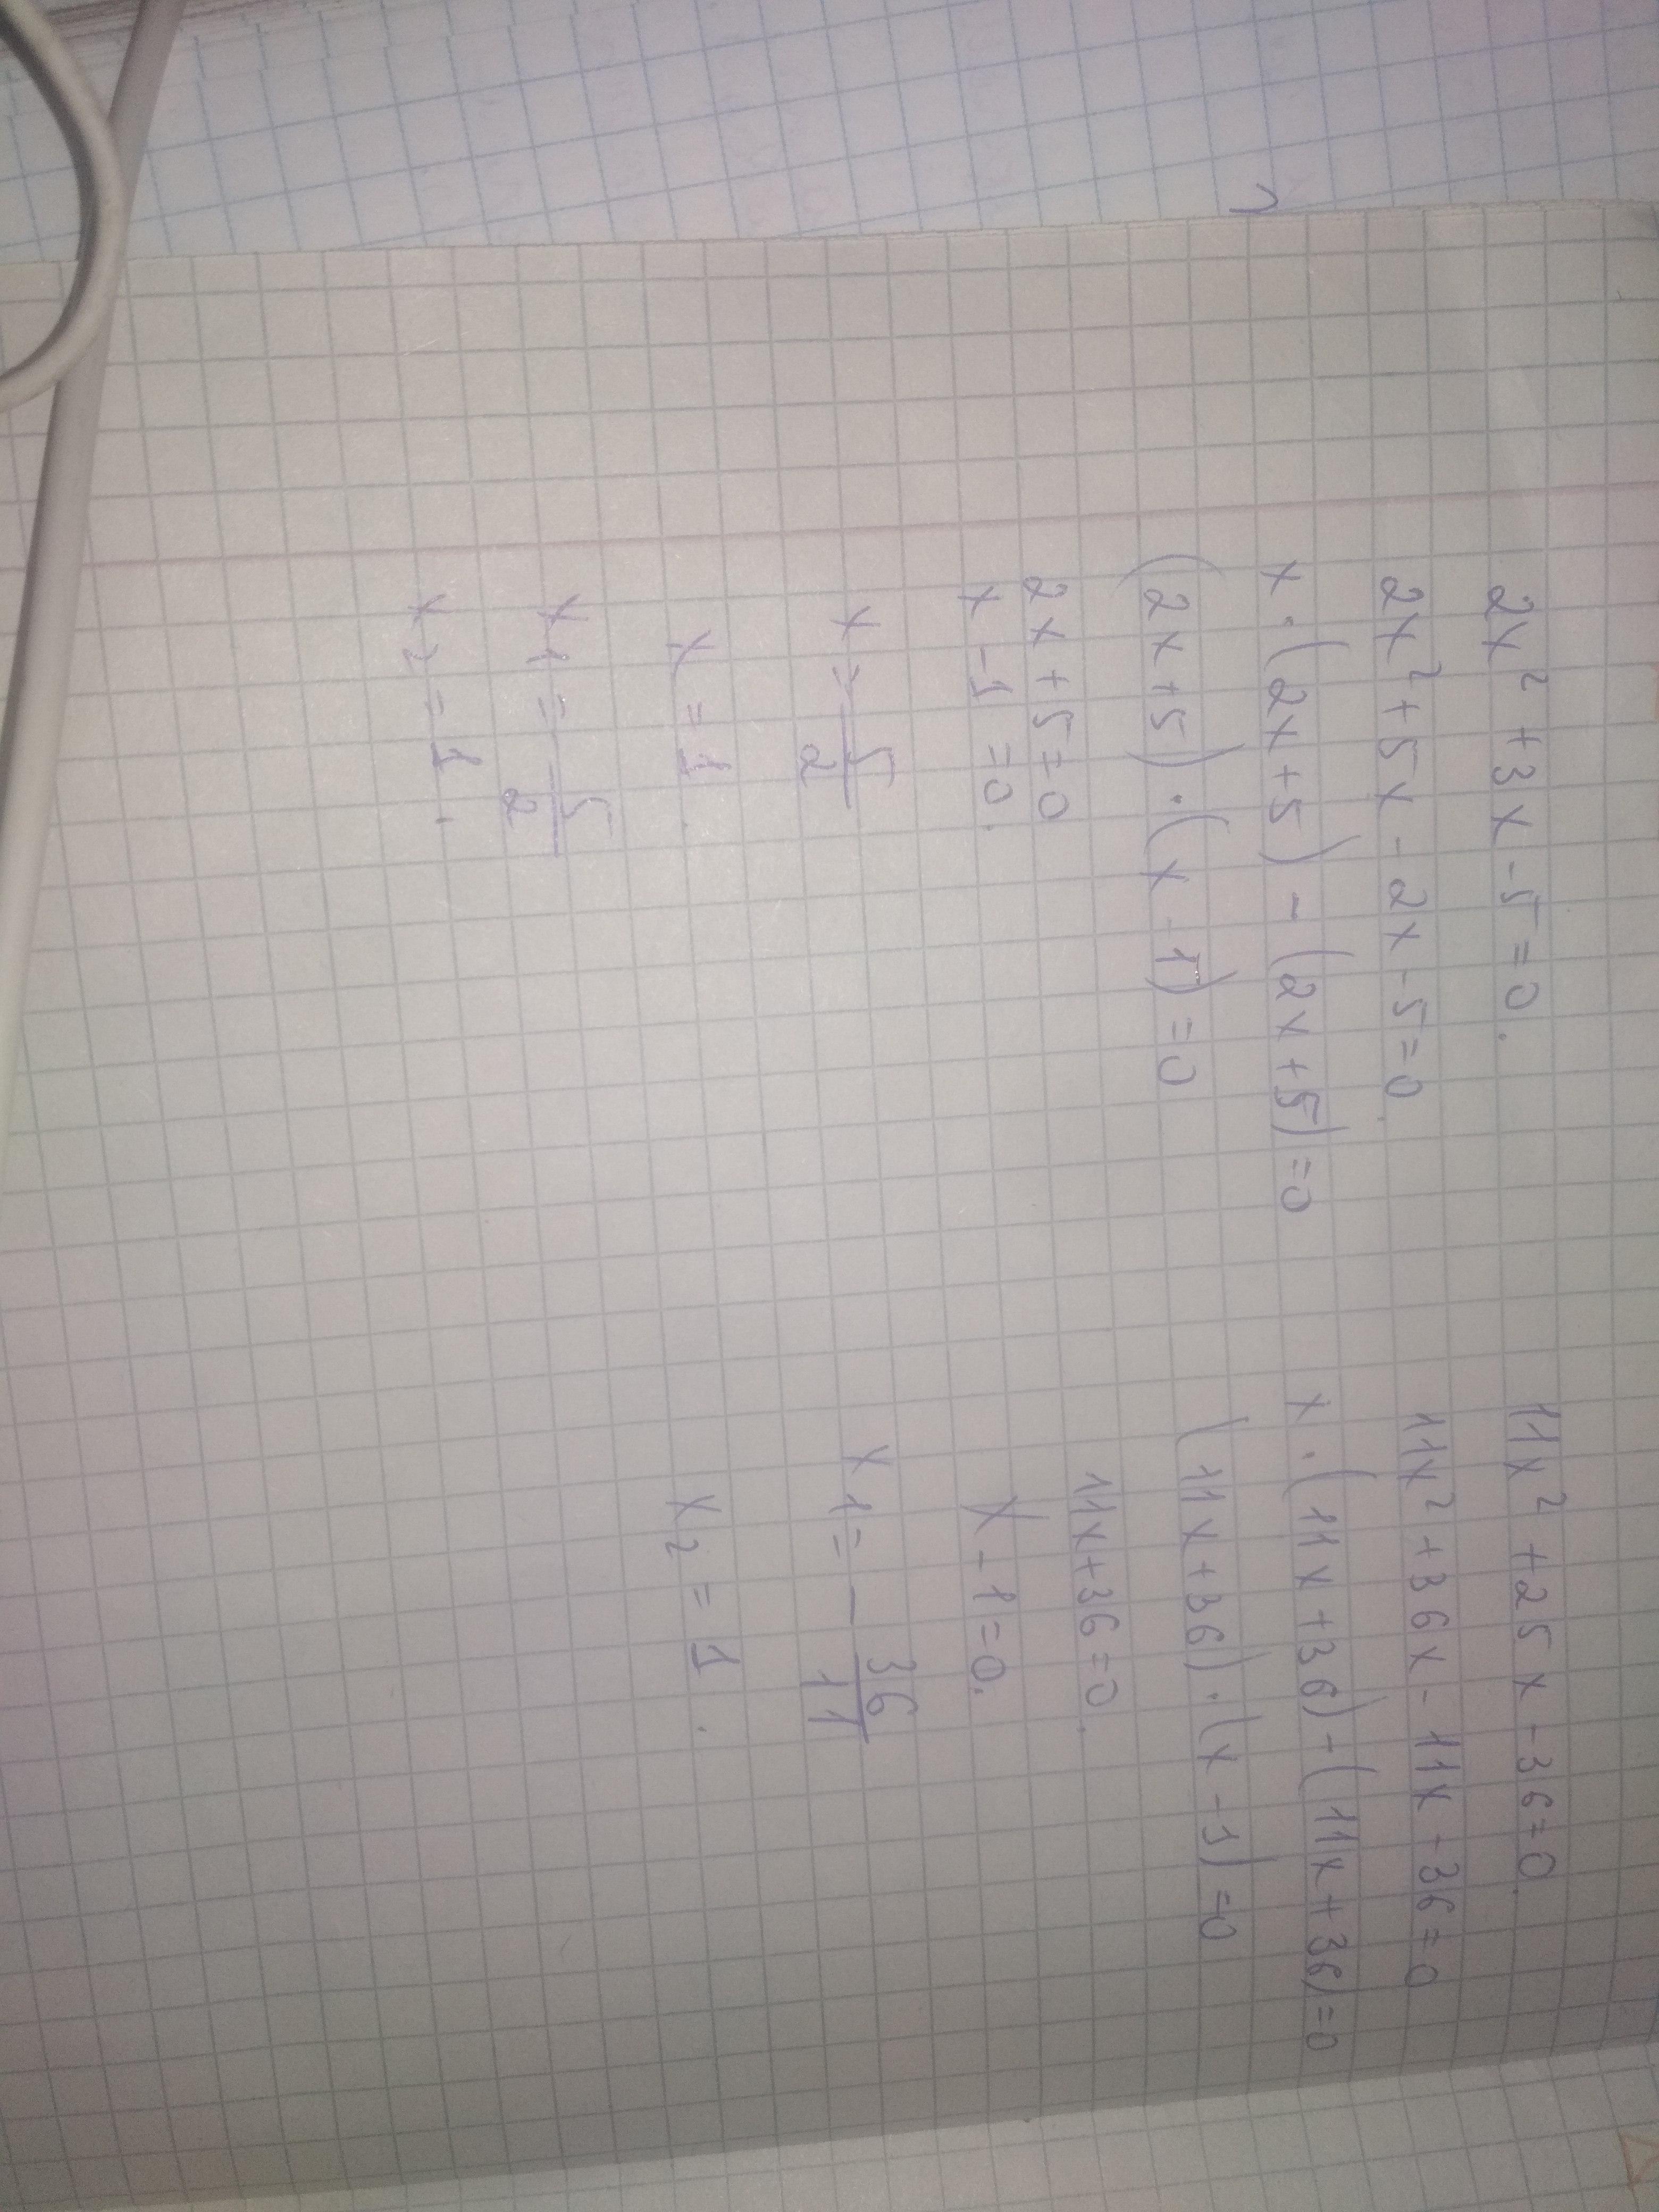 2x² + 3x - 5 = 0.
2x² + 5x - 2x - 5 = 0.
x · (2x + 5) - (2x + 5) = 0
(2x + 5) · (x - 1) = 0
2x + 5 = 0
x - 1 = 0.
x = - 5/2
x = 1.
x1 = - 5/2
x2 = 1.
11x² + 25x - 36 = 0.
11x² + 36x - 11x - 36 = 0
x · (11x + 36) - (11x + 36) = 0
(11x + 36) · (x - 1) = 0
11x + 36 = 0.
x - 1 = 0.
x1 = - 36/11
x2 = 1.